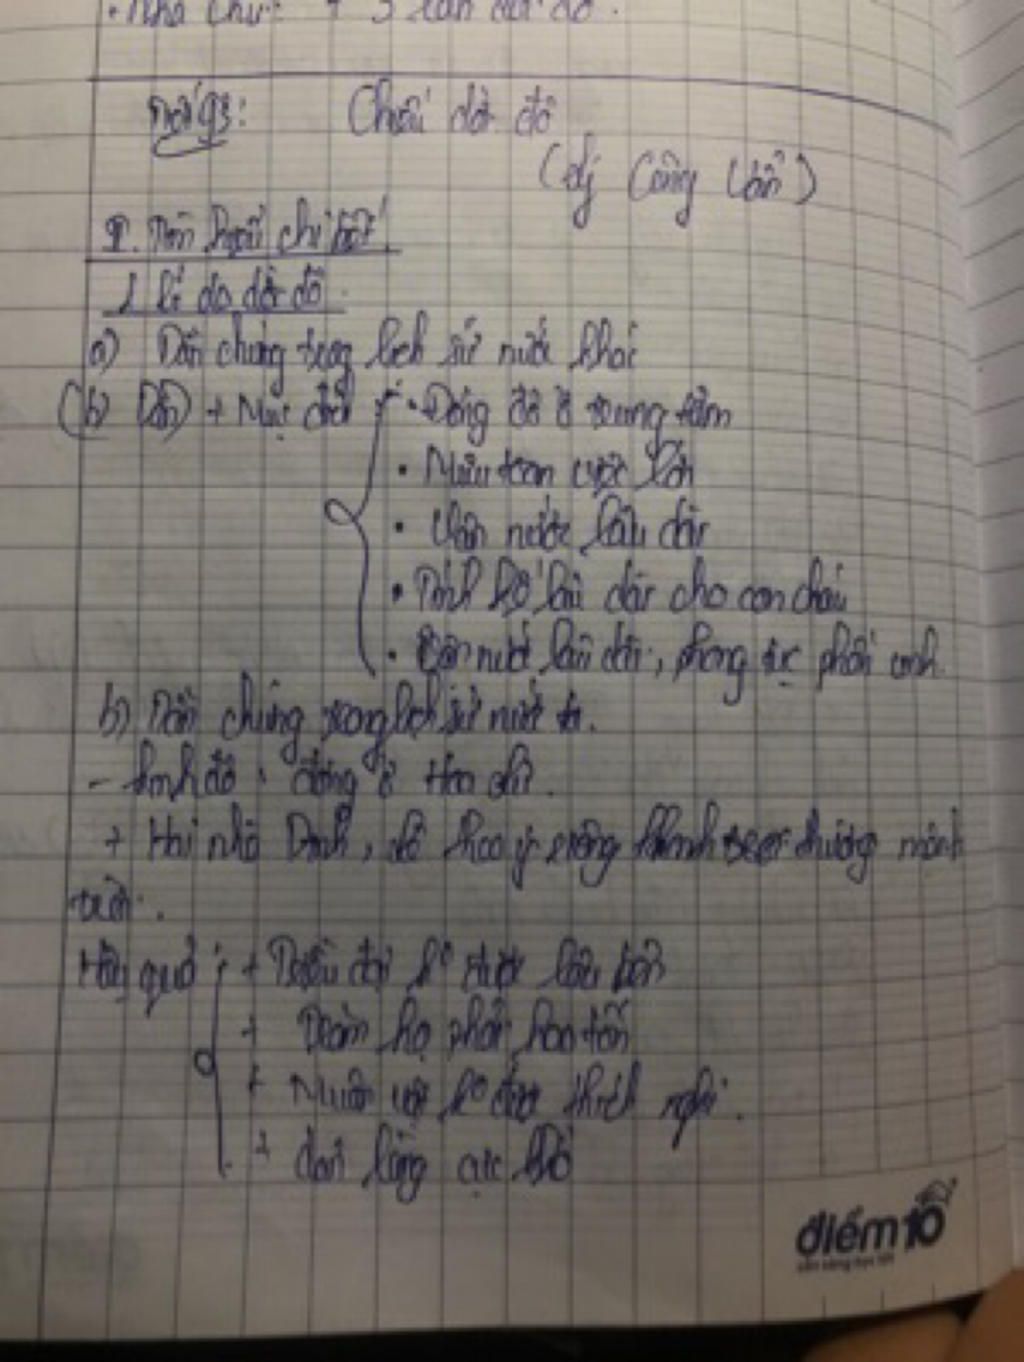 • Nhà Chu: + 3 lần dời đô.
Chiếu dời đô
(Lý Công Uẩn)
II. Tìm hiểu chi tiết
1. Lí do dời đô
a) Dẫn chứng trong lịch sử nước khác
+ Mục đích • Đóng đô ở trung tâm
• Mưu toan việc lớn
• Vận nước lâu dài
• Tính kế lâu dài cho con cháu
• nước lâu dài, phong tục phồn vinh.
b) Dẫn chứng trong lịch sử nước ta.
- Kinh đô: đóng ở Hoa Lư.
+ Hai nhà Đinh, Lê theo ý riêng khinh thường mệnh
trời.
Hậu quả: + Triều đại ko được lâu bền
+ Trăm họ phải hao tốn
+ Muôn vật ko được thích nghi.
+
điểm10